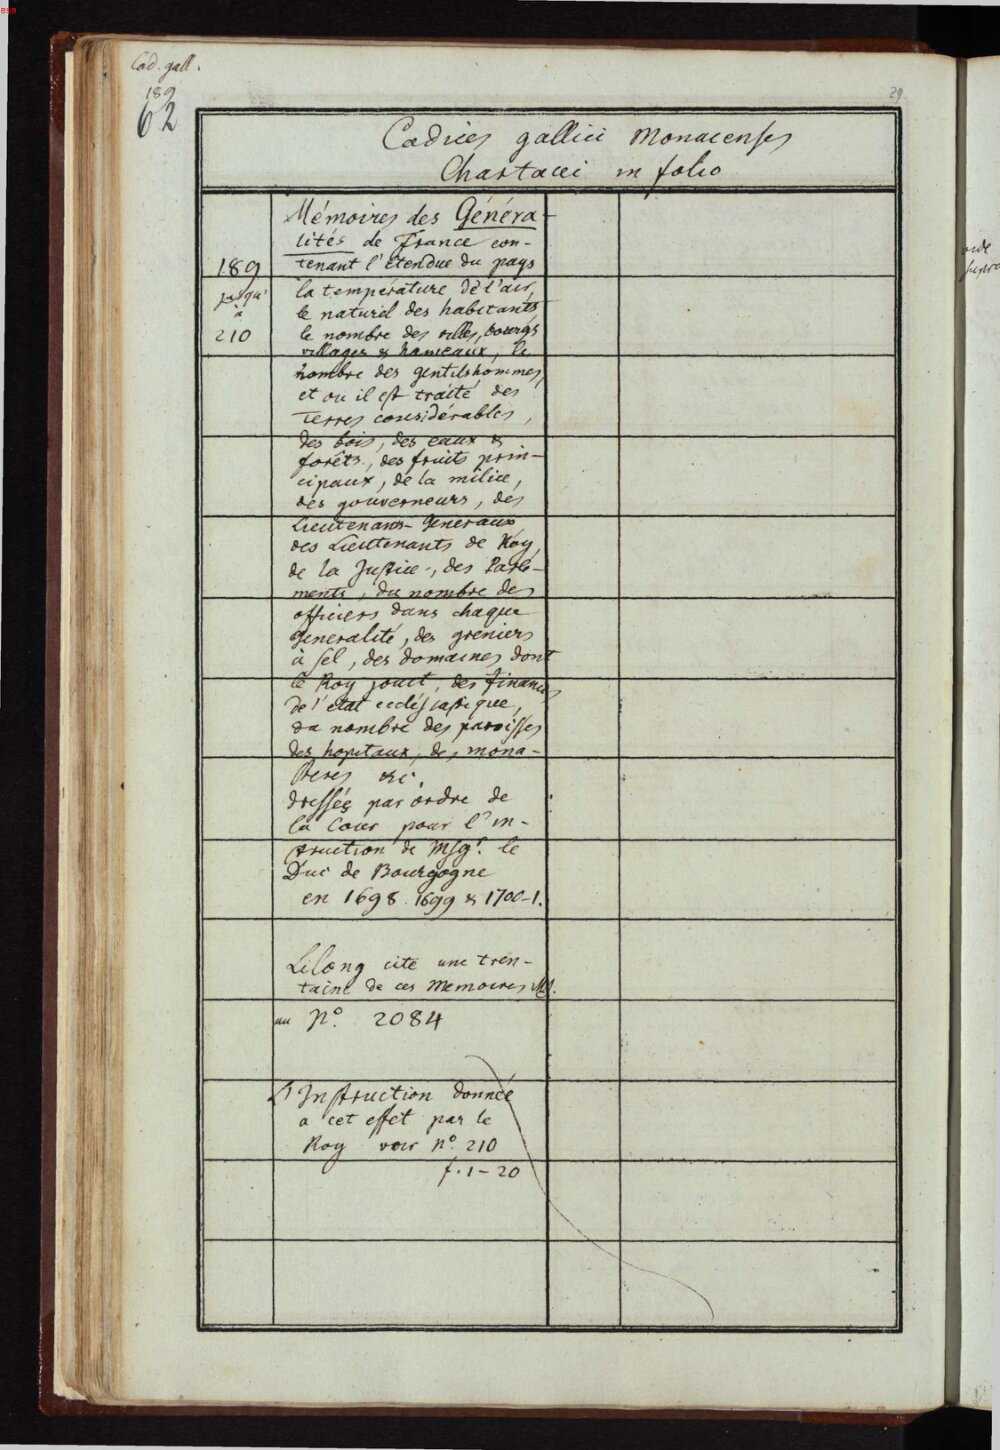 BSB
Cod. gall.
189
62
29.
Codices gallici Monacenses
Chartacei in folio
Mémoires des Généra-
lités de France con-
189 tenant l'étendue du pays
jusqu' la température de l'air,
à le naturel des habitants,
210 le nombre des villes, bourgs
villages & hameaux, le
nombre des gentilshommes,
et ou il est traité des
Terres considérables,
des bois, des eaux &
forêts, des fruits prin-
cipaux, de la milice,
des gouverneurs, des
Lieutenans-Generaux,
des Lieutenants de Roy,
de la Justice, des Parle-
ments, du nombre des
officiers dans chaque
généralité, des greniers
à sel, des domaines dont
le Roy jouit, des finances
de l'état ecclésiastique,
du nombre des paroisses
des hopitaux, des mona-
steres &c.
dressés par ordre de
la Cour pour l'in-
struction de Msgr. le
Duc de Bourgogne
en 1698. 1699 & 1700-1.
Lelong cite une tren-
taine de ces Memoires
au No. 2084
L'Instruction donnée
a cet effet par le
Roy voir No. 210
f. 1-20
vide
supra